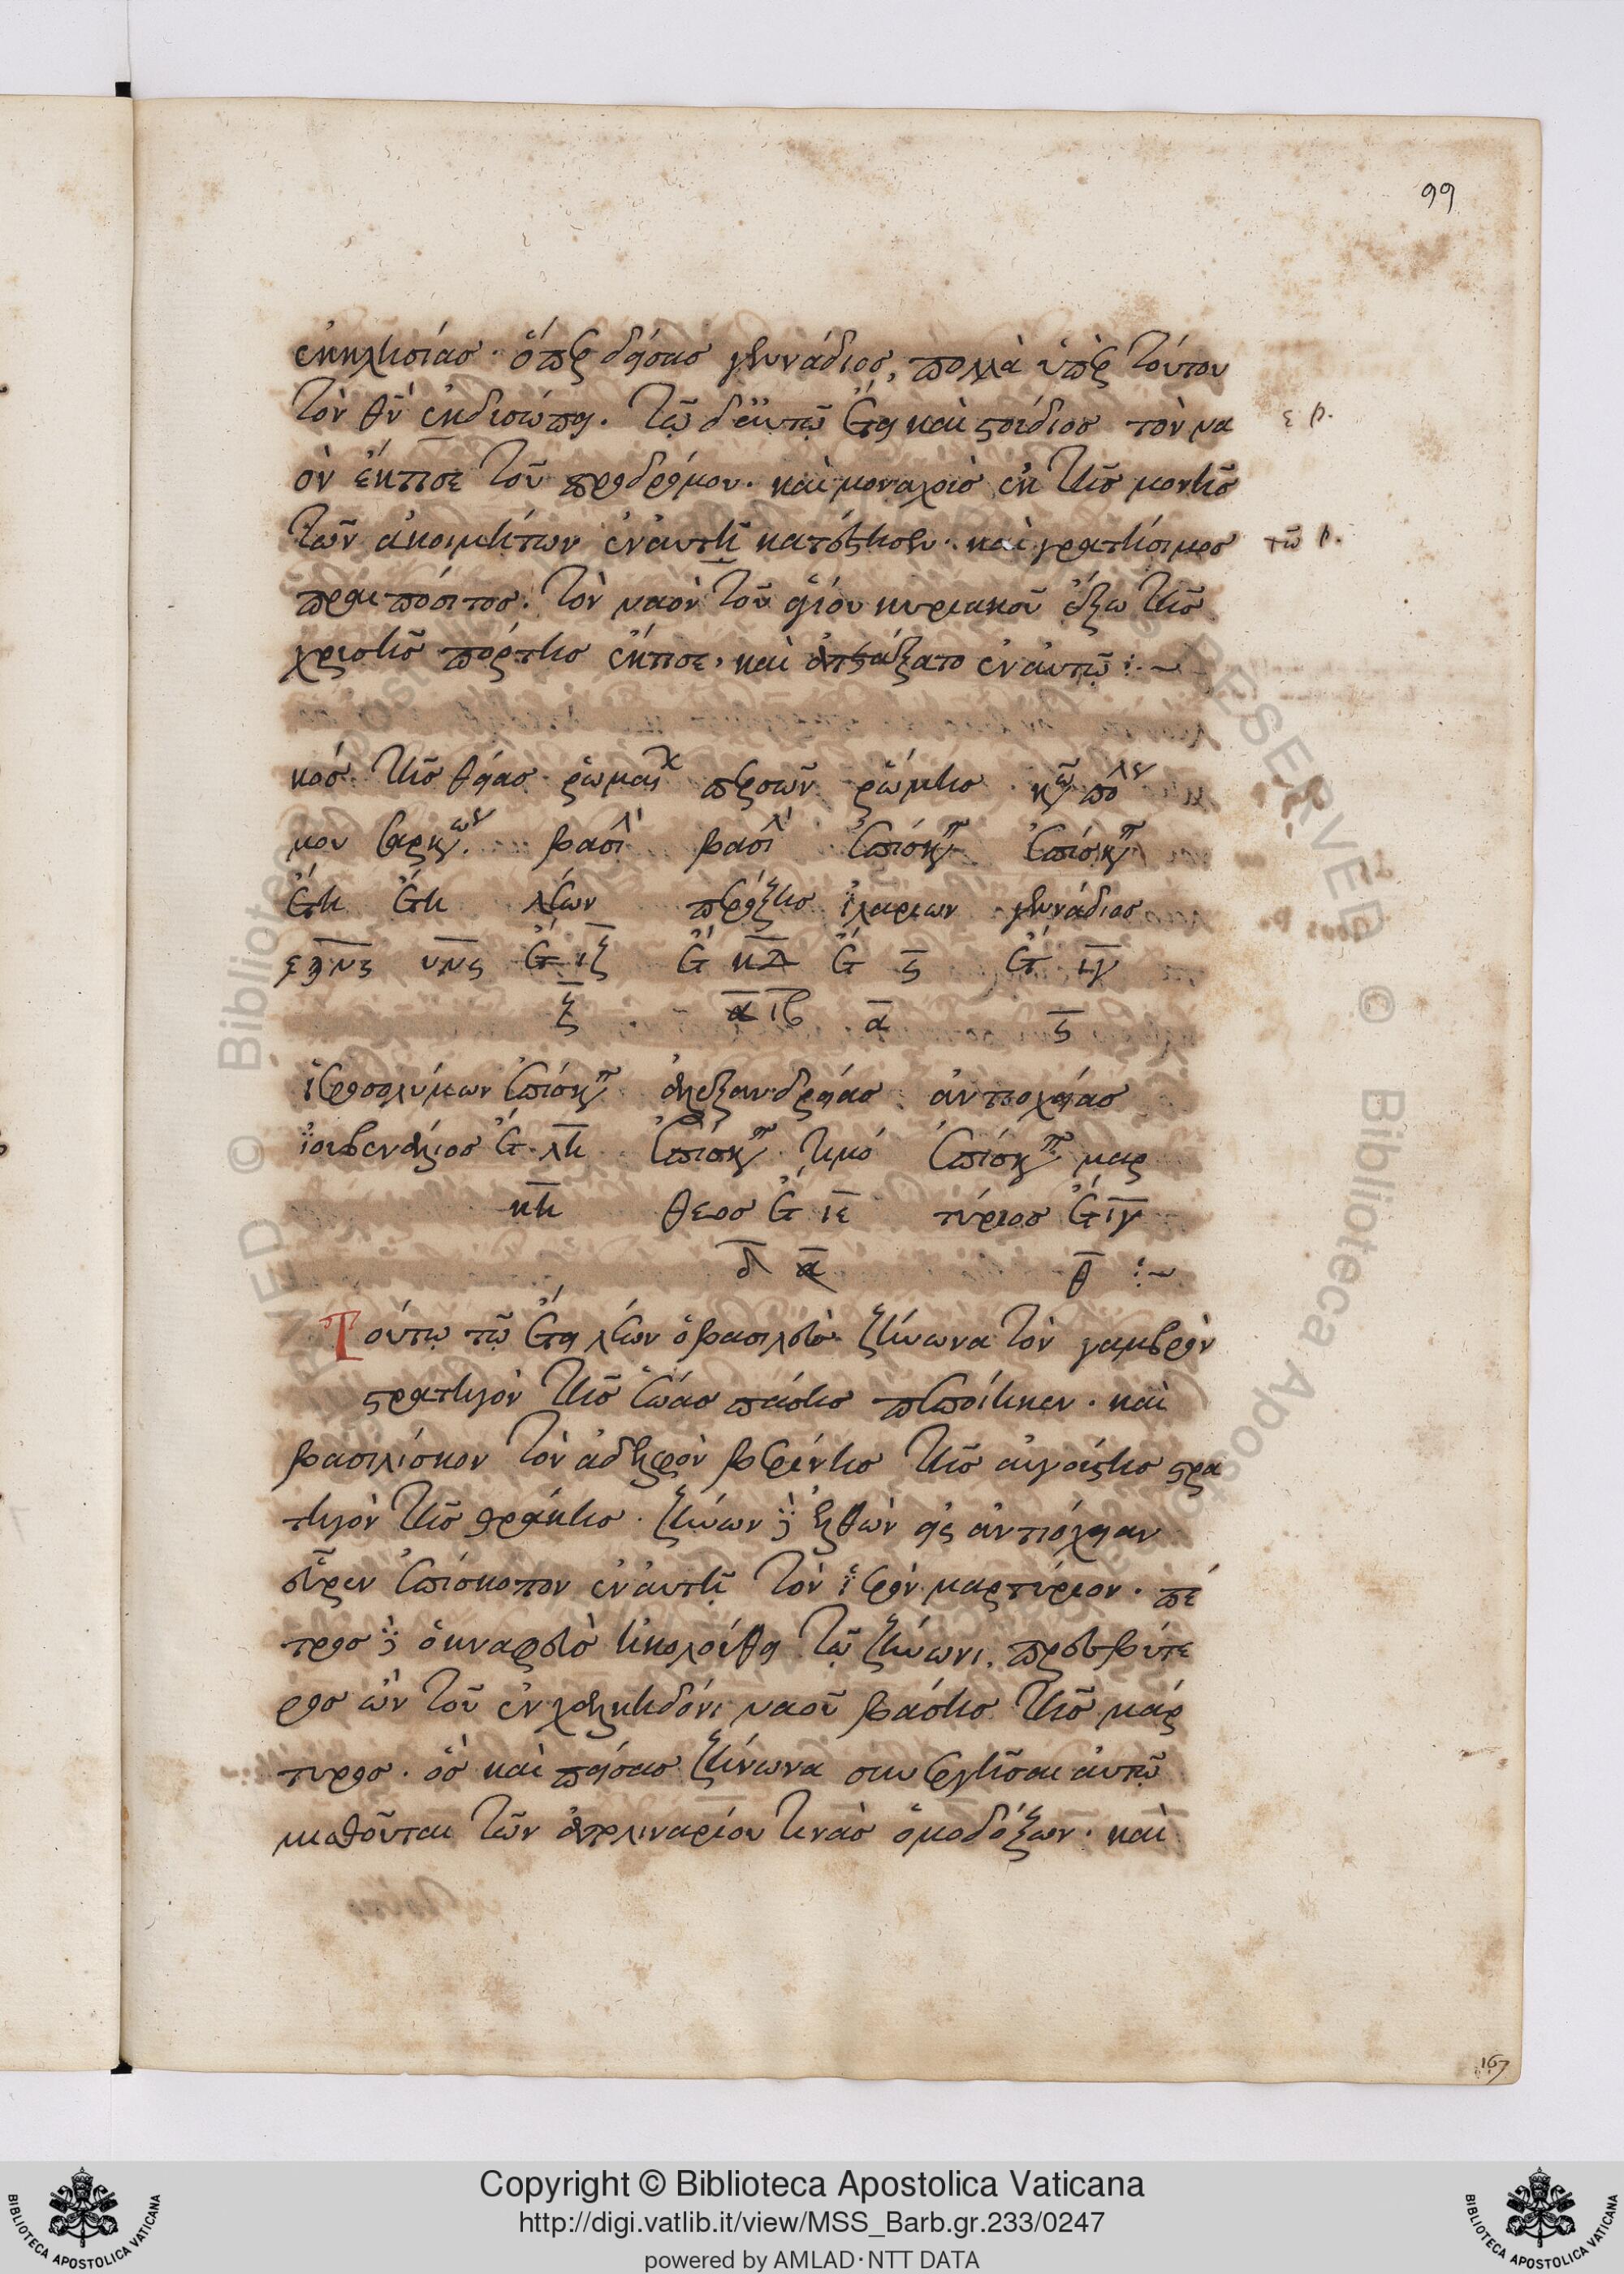 99
ἐκκλησίας. ὅπερ δείσας γεννάδιος, πολλὰ ὑπὲρ τούτου
τὸν θν̄ ἐκδισώπει. τῷ δ' αὐτῷ ἔτει καὶ στούδιος τὸν να
ὸν ἔκτισε τοῦ προδρόμου. καὶ μοναχοὺς ἐκ τῆς μονῆς
τῶν ἀκοιμήτων ἐν αὐτῇ κατέστησεν. καὶ γρατήσιμος
πραιπόσιτος. τὸν ναὸν τοῦ ἁγίου κυριακοῦ ἔξω τῆς
χρυσῆς πόρτης ἔκτισε, καὶ ἀπετάξατο ἐν αὐτῷ :~
κός. τῆς θείας ῥωμαι περσῶν ῥώμης κων πό
μου σαρκ βασι βασι ἐπίσκ ἐπίσκ
ἔτη ἔτη λέων περόζης ἱλαρίων γεννάδιος
ἱεροσολύμων ἐπίσκ ἀλεξανδρείας ἀντιοχείας
ἰουβενάλιος ἔ λη ἐπίσκ τιμό ἐπίσκ μαρ
κη θεος ἔ ιε τύριος ἔ ιγ
δ α θ :~
Τούτῳ τῷ ἔτει λέων ὁ βασιλεὺς ζήνωνα τὸν γαμβρὸν
στρατηγὸν τῆς ἑῴας πάσης πεποίηκεν. καὶ
βασιλίσκον τὸν ἀδελφὸν βερίνης τῆς αὐγούστης στρα
τηγὸν τῆς θράκης. ζήνων δὲ ἐλθὼν εἰς ἀντιόχειαν
εὗρεν ἐπίσκοπον ἐν αὐτῇ τὸν ἱερὸν μαρτύριον. πέ
τρος δὲ ὁ κναφεὺς ἠκολούθει τῷ ζήνωνι, πρεσβύτε
ρος ὢν τοῦ ἐν χαλκηδόνι ναοῦ βάσσης τῆς μάρ
τυρος. ὃς καὶ πείσας ζήνωνα συνεργῆσαι αὐτῷ
μισθοῦται τῶν ἀπολιναρίου τινὰς ὁμοδόξων. καὶ
167
Copyright © Biblioteca Apostolica Vaticana
http://digi.vatlib.it/view/MSS_Barb.gr.233/0247
powered by AMLAD·NTT DATA
BIBLIOTECA APOSTOLICA VATICANA
BIBLIOTECA APOSTOLICA VATICANA